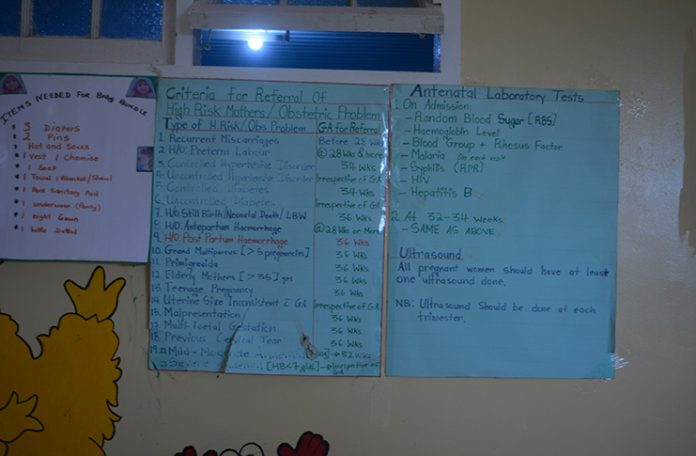 ITEMS NEEDED FOR BABY BUNDLE
3 Diapers
2 Pins
Hat and Socks
1 Vest 1 Chemise
1 Soap
1 Towel 1 Blanket/Shawl
1 Pack Sanitary Pad
1 underwear (Panty)
1 night Gown
1 bottle Dettol
Criteria for Referral Of
High Risk Mothers / Obstetric Problem
Type of H.Risk/Obs Problem GA for Referral
1. Recurrent Miscarriages Before 28 Wks
2. H/O: Preterm Labour @ 28 Wks & more
3. Controlled Hypertensive Disorder 34 Wks
4. Uncontrolled Hypertensive Disorder Irrespective of GA
5. Controlled Diabetes 34 Wks
6. Uncontrolled Diabetes Irrespective of GA
7. H/O Still Birth/Neonatal Death/ LBW 36 Wks
8. H/O Antepartum Haemorrhage @ 28 Wks or More
9. H/O. Post Partum Haemorrhage 36 Wks
10. Grand Multiparous [>5 pregnancies] 36 Wks
11. Primigravida 36 Wks
12. Elderly Mothers [>35] yrs 36 Wks
13. Teenage Pregnancy 36 Wks
14. Uterine Size Inconsistent c̄ GA Irrespective of GA
15. Malpresentation 36 Wks
17. Multi-foetal Gestation 36 Wks
18. Previous Cervical Tear 36 Wks
19. Mild - Moderate → 32 Wks
Severe [HB<7g/dL] → Irrespective of GA
Antenatal Laboratory Tests
1. On Admission:
- Random Blood Sugar [RBS]
- Haemoglobin Level
- Blood Group + Rhesus Factor
- Malaria
- Syphilis (RPR)
- HIV
- Hepatitis B
2. At 32-34 Weeks
- SAME AS ABOVE
Ultrasound
All pregnant women should have at least
one ultrasound done.
NB: Ultrasound Should be done at each
trimester.